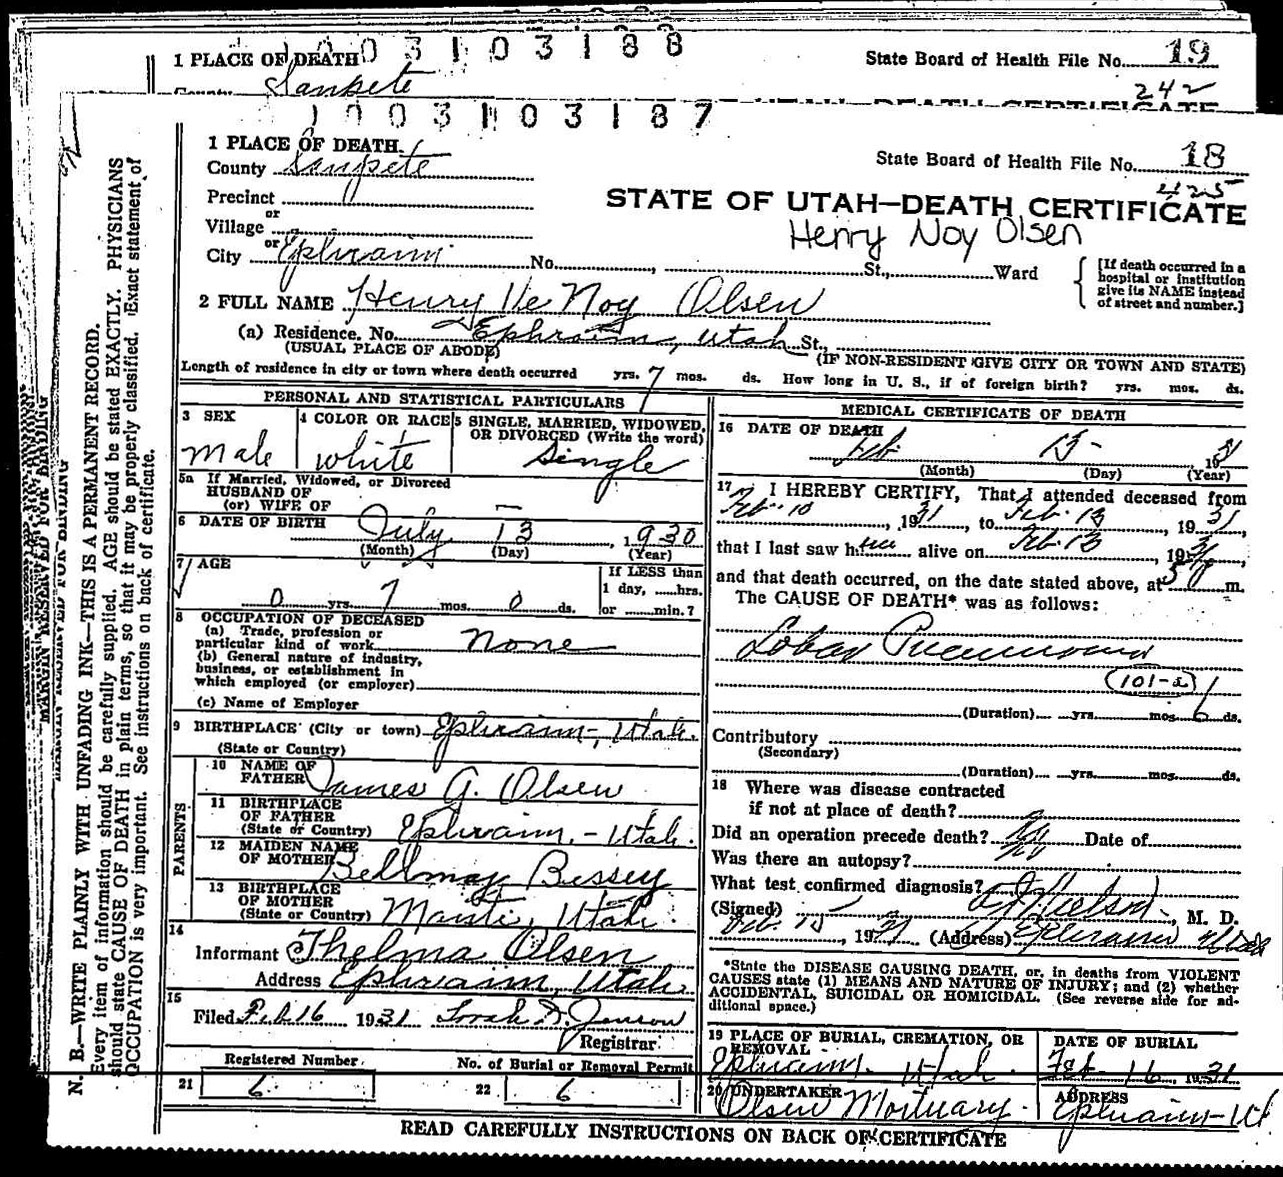 1 0 0 3 1 0 3 1 8 8
1 PLACE OF DEATH
State Board of Health File No. 19
County Sanpete
242
1 0 0 3 1 0 3 1 8 7
1 PLACE OF DEATH
County Sanpete
State Board of Health File No. 18
425
Precinct
or
Village
STATE OF UTAH—DEATH CERTIFICATE
Henry Noy Olsen
or
City Ephraim No. , St., Ward
[If death occurred in a hospital or institution give its NAME instead of street and number.]
2 FULL NAME Henry De Noy Olsen
(a) Residence. No. Ephraim, Utah St.,
(USUAL PLACE OF ABODE)
(IF NON-RESIDENT GIVE CITY OR TOWN AND STATE)
Length of residence in city or town where death occurred yrs. 7 mos. ds. How long in U. S., if of foreign birth? yrs. mos. ds.
PERSONAL AND STATISTICAL PARTICULARS
3 SEX
Male
4 COLOR OR RACE
White
5 SINGLE, MARRIED, WIDOWED, OR DIVORCED (Write the word)
Single
5a If Married, Widowed, or Divorced
HUSBAND OF
(or) WIFE OF —
6 DATE OF BIRTH July 13, 1930
(Month) (Day) (Year)
7 AGE
0 yrs. 7 mos. 0 ds.
If LESS than
1 day, ......hrs.
or ......min.?
8 OCCUPATION OF DECEASED
(a) Trade, profession or
particular kind of work None
(b) General nature of industry,
business, or establishment in
which employed (or employer)
(c) Name of Employer
9 BIRTHPLACE (City or town) Ephraim, Utah.
(State or Country)
PARENTS
10 NAME OF
FATHER James G. Olsen
11 BIRTHPLACE
OF FATHER
(State or Country) Ephraim. - Utah.
12 MAIDEN NAME
OF MOTHER Bellmay Bessey
13 BIRTHPLACE
OF MOTHER
(State or Country) Manti, Utah.
14
Informant Thelma Olsen
Address Ephraim, Utah.
15
Filed Feb 16 1931
Registrar
Registered Number
No. of Burial or Removal Permit
21 6
22 6
MEDICAL CERTIFICATE OF DEATH
16 DATE OF DEATH
Feb. 13 1931
(Month) (Day) (Year)
17 I HEREBY CERTIFY, That I attended deceased from
Feb. 10, 1931, to Feb. 13, 1931,
that I last saw him alive on Feb. 13, 1931,
and that death occurred, on the date stated above, at m.
The CAUSE OF DEATH* was as follows:
Lobar Pneumonia
101-a
(Duration) yrs. mos. 6 ds.
Contributory
(Secondary)
(Duration) yrs. mos. ds.
18 Where was disease contracted
if not at place of death?
Did an operation precede death? No Date of
Was there an autopsy? No
What test confirmed diagnosis?
(Signed) , M. D.
Feb. 15, 1931 (Address) Ephraim Utah
*State the DISEASE CAUSING DEATH, or, in deaths from VIOLENT
CAUSES state (1) MEANS AND NATURE OF INJURY; and (2) whether
ACCIDENTAL, SUICIDAL OR HOMICIDAL. (See reverse side for ad-
ditional space.)
19 PLACE OF BURIAL, CREMATION, OR
REMOVAL
Ephraim. Utah.
DATE OF BURIAL
Feb 16, 1931
20 UNDERTAKER
Olsen Mortuary.
ADDRESS
Ephraim-Ut
READ CAREFULLY INSTRUCTIONS ON BACK OF CERTIFICATE
MARGIN RESERVED FOR BINDING
N. B.—WRITE PLAINLY WITH UNFADING INK—THIS IS A PERMANENT RECORD.
Every item of information should be carefully supplied. AGE should be stated EXACTLY. PHYSICIANS
should state CAUSE OF DEATH in plain terms, so that it may be properly classified. Exact statement of
OCCUPATION is very important. See instructions on back of certificate.